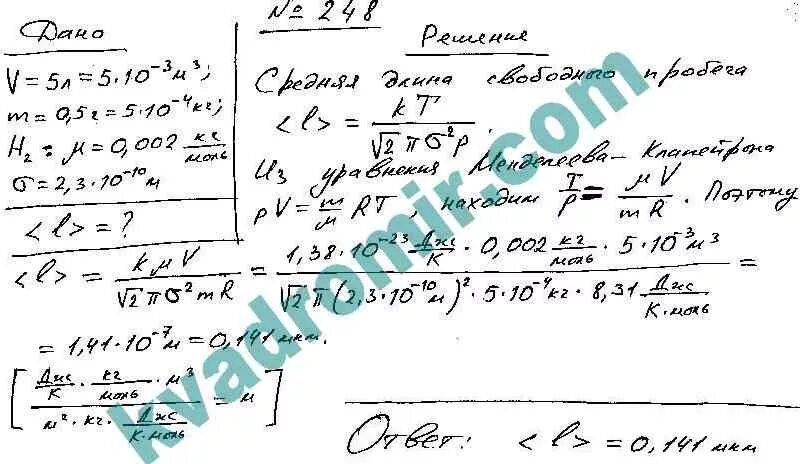 № 248
Дано
V = 5л = 5·10⁻³ м³;
m = 0,5 г = 5·10⁻⁴ кг;
H₂: μ = 0,002 кг/моль
σ = 2,3·10⁻¹⁰ м
<l> = ?
Решение
Средняя длина свободного пробега
<l> = kT / √2 π σ² p.
Из уравнения Менделеева–Клапейрона
pV = m/μ RT, находим T/p = μV/mR. Поэтому
<l> = kμV / √2 π σ² mR = 1,38·10⁻²³ Дж/К · 0,002 кг/моль · 5·10⁻³ м³ / √2 π (2,3·10⁻¹⁰ м)² · 5·10⁻⁴ кг · 8,31 Дж/К·моль =
= 1,41·10⁻⁷ м = 0,141 мкм.
[ Дж/К · кг/моль · м³ / м² · кг · Дж/К·моль = м ]
Ответ: <l> = 0,141 мкм
kvadromir.com